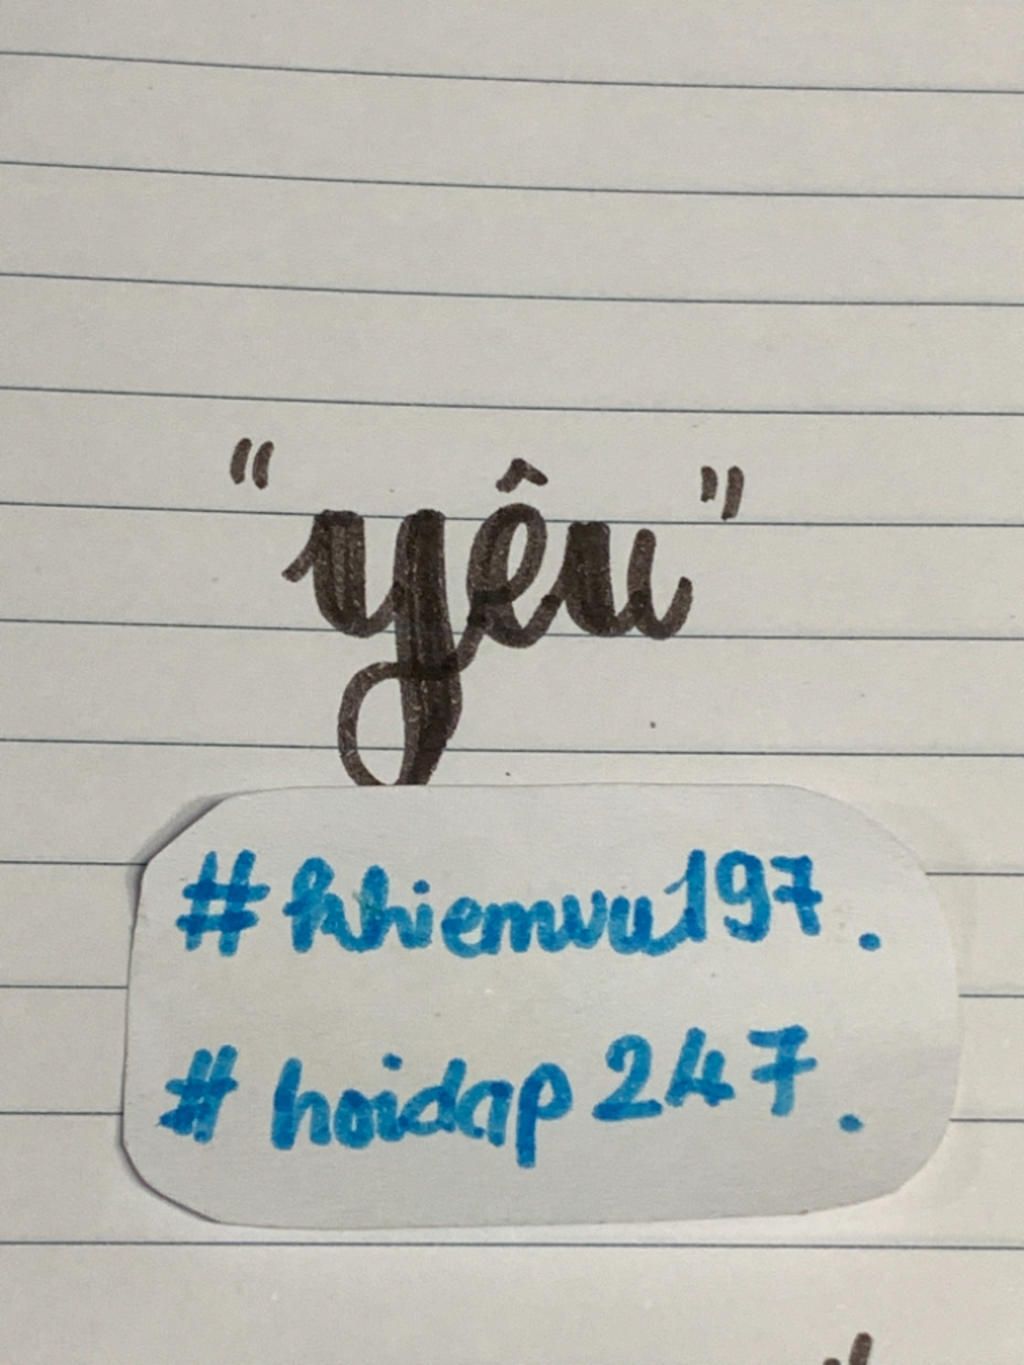 "yêu"
#khiemvu197.
#hoidap247.